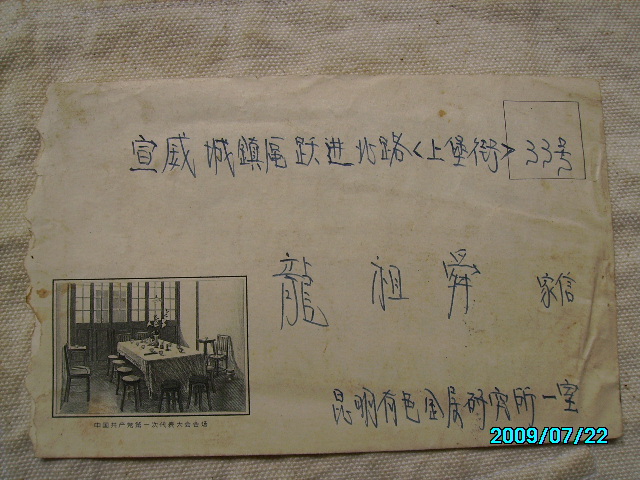 宣威城鎮南跃进北路<上堡街>33号
龍祖舜 家信
中国共产党第一次代表大会会场
昆明有色金属研究所一室
2009/07/22